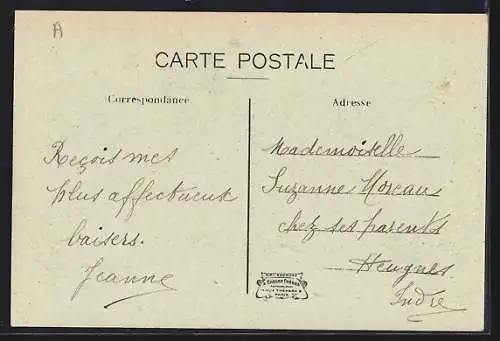 A
CARTE POSTALE
Correspondance
Adresse
Reçois mes
plus affectueux
baisers.
Jeanne
Mademoiselle
Suzanne Moreau
chez ses parents
Heugnes
Indre